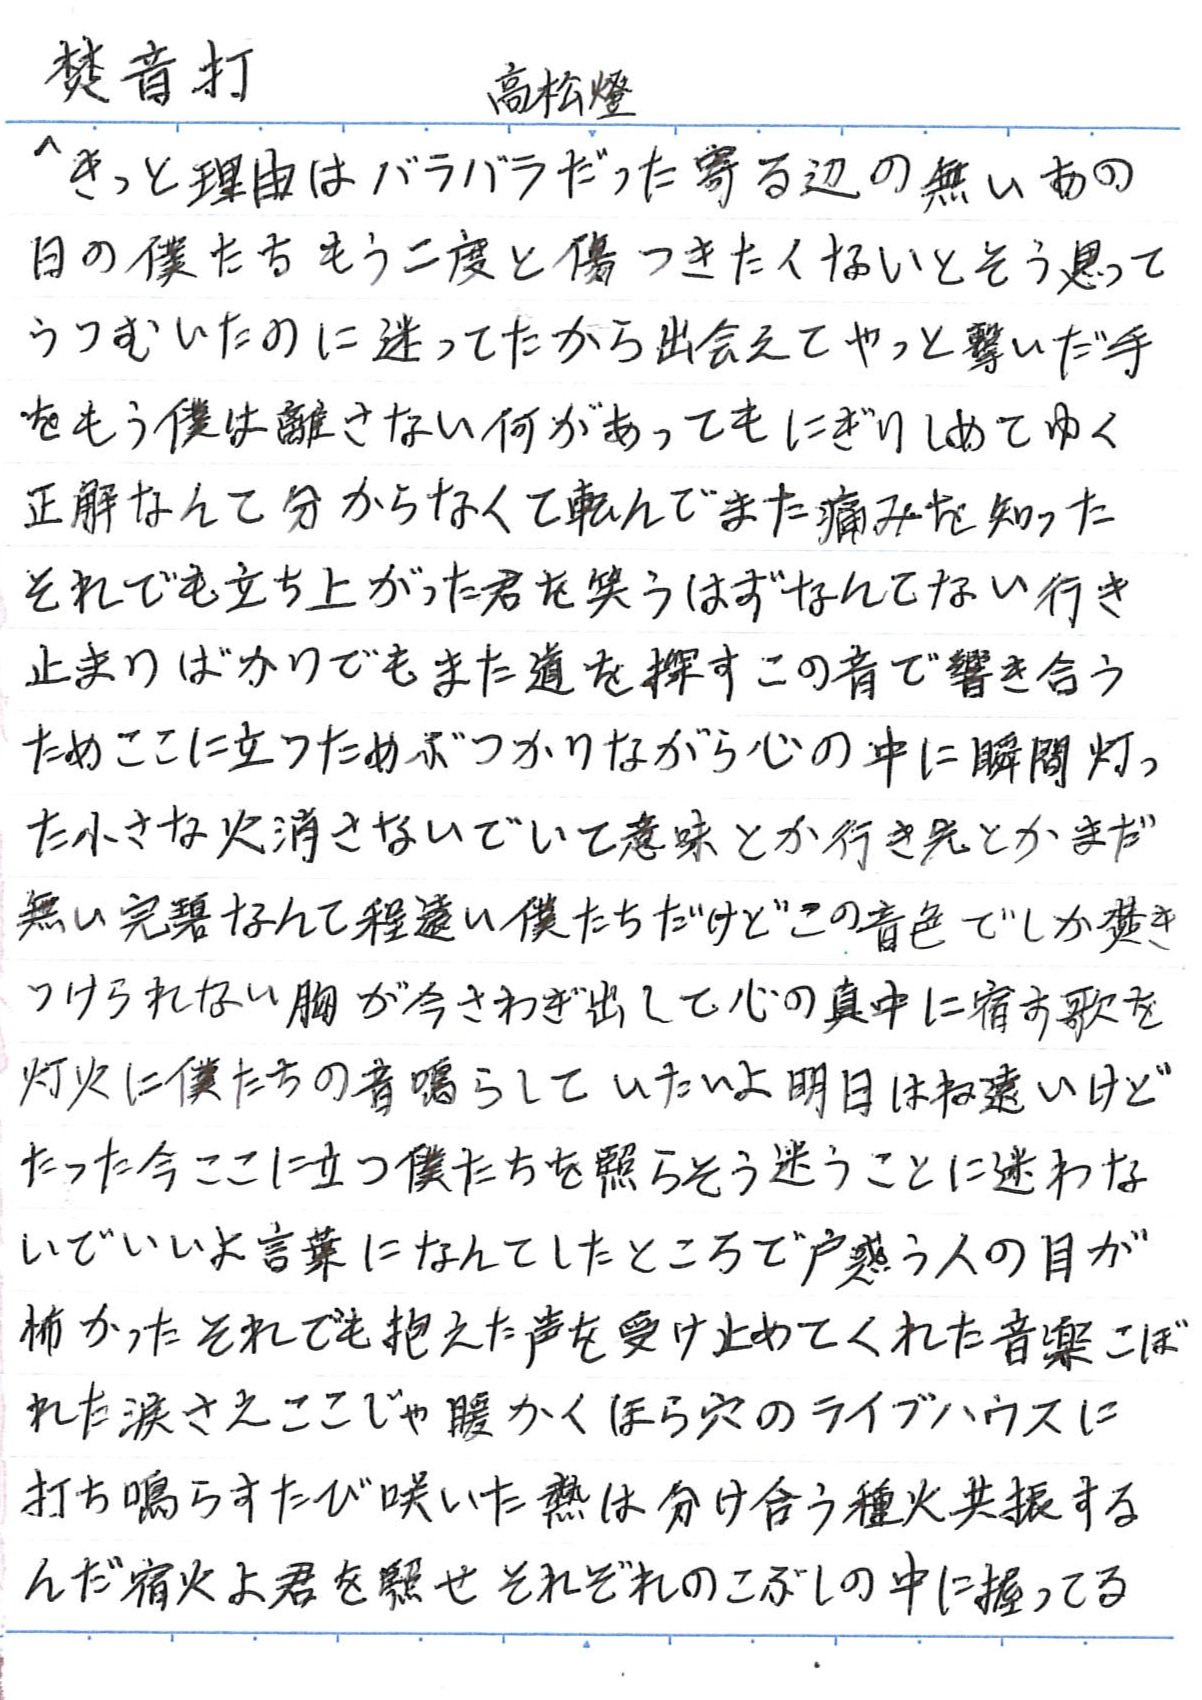 焚音打
高松燈
^きっと理由はバラバラだった寄る辺の無いあの
日の僕たちもう二度と傷つきたくないとそう思って
うつむいたのに迷ってたから出会えてやっと繋いだ手
をもう僕は離さない何があってもにぎりしめてゆく
正解なんて分からなくて転んでまた痛みを知った
それでも立ち上がった君を笑うはずなんてない行き
止まりばかりでもまた道を探すこの音で響き合う
ためここに立つためぶつかりながら心の中に瞬間灯っ
た小さな火消さないでいて意味とか行き先とかまだ
無い完碧なんて程遠い僕たちだけどこの音色でしか焚き
つけられない胸が今さわぎ出して心の真中に宿す歌を
灯火に僕たちの音鳴らしていたいよ明日はね遠いけど
たった今ここに立つ僕たちを照らそう迷うことに迷わな
いでいいよ言葉になんてしたところで戸惑う人の目が
怖かったそれでも抱えた声を受け止めてくれた音楽こぼ
れた涙さえここじゃ暖かくほら穴のライブハウスに
打ち鳴らすたび咲いた熱は分け合う種火共振する
んだ宿火よ君を照せそれぞれのこぶしの中に握ってる